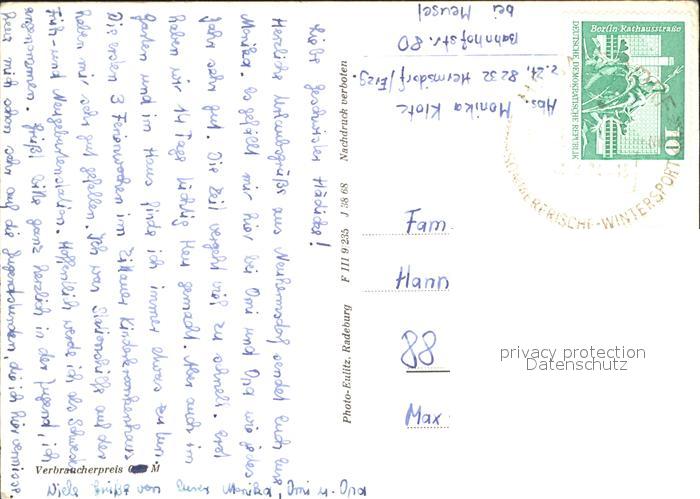 Liebe Geschwister Hädicke!
Herzliche Urlaubsgrüße aus Neuhermsdorf sendet Euch Eure
Monika. Es gefällt mir hier bei Omi und Opa wie jedes
Jahr sehr gut. Die Zeit vergeht viel zu schnell. Erst
haben wir 14 Tage tüchtig Heu gemacht. Aber auch im
Garten und im Haus finde ich immer etwas zu tun.
Die ersten 3 Ferienwochen im Zittauer Kinderkrankenhaus
haben mir sehr gut gefallen. Ich war Stationshilfe auf der
Früh- und Neugeborenenstation. Hoffentlich werde ich als Schwester
angenommen. Grüßt bitte ganz herzlich in der Jugend, ich
freue mich schon sehr auf die Jugendstunden, die ich hier vermisse.
Viele Grüße von Eurer Monika, Omi u. Opa
Verbraucherpreis M
Photo-Eulitz, Radeburg F III 9 235 J 38 68 Nachdruck verboten
Abs. Monika Klotz
z. Zt. 8232 Hermsdorf/Erzg.
Bahnhofstr. 80
bei Meusel
Berlin-Rathausstraße
DEUTSCHE DEMOKRATISCHE REPUBLIK
10
SOMMERFRISCHE-WINTERSPORT
Fam.
Hann
88
Max
privacy protection
Datenschutz